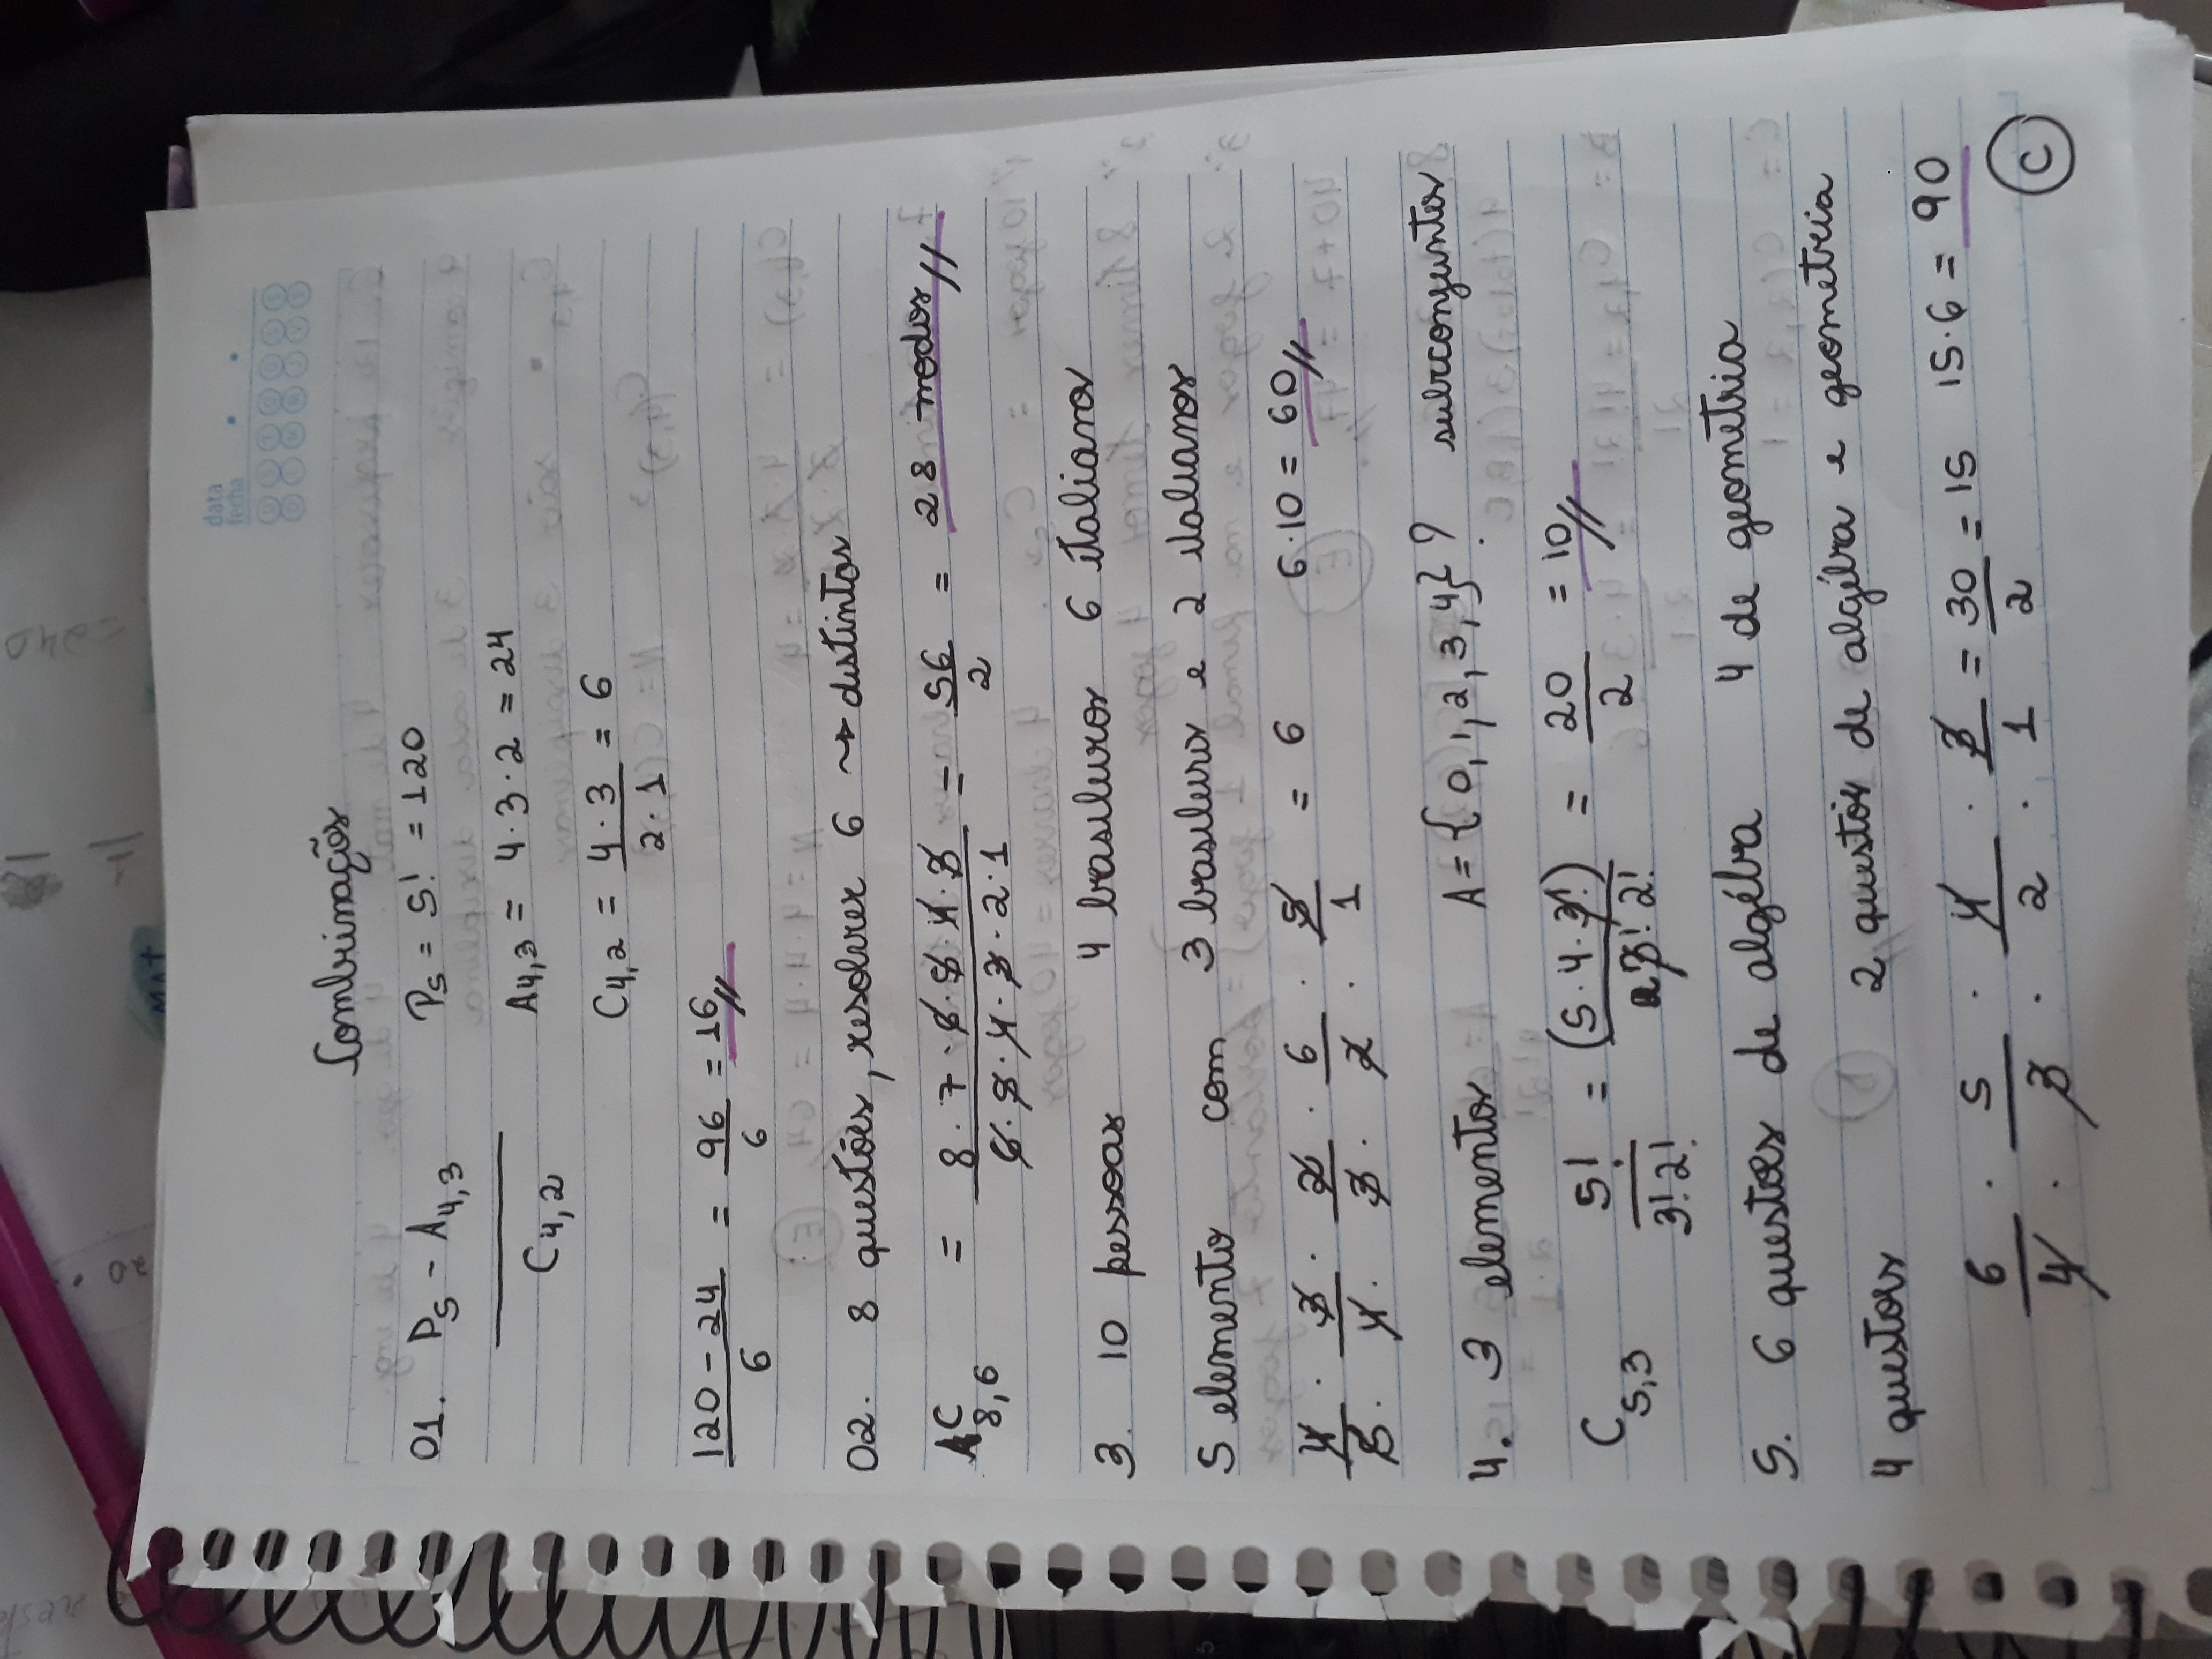 data
fecha
Combinaçõs
01. P5 - A4,3 / C4,2 P5 = 5! = 120
A4,3 = 4·3·2 = 24
C4,2 = 4·3 / 2·1 = 6
120 - 24 / 6 = 96 / 6 = 16//
02. 8 questões, resolver 6 ~> distintas
AC8,6 = 8·7·6·5·4·3 / 6·5·4·3·2·1 = 56 / 2 = 28 modos//
3. 10 pessoas 4 brasileiros 6 italianos
5 elemento com 3 brasileiros e 2 italianos
4/5 · 3/4 · 2/3 · 6/2 · 5/1 = 6 6·10 = 60//
4. 3 elementos A = {0, 1, 2, 3, 4}? subconjuntos
C5,3 5! / 3! 2! = (5·4·3!) / 3! 2! = 20 / 2 = 10//
5. 6 questões de algébra 4 de geometria
4 questões 2 questõs de algébra e geometria
6/4 · 5/3 · 4/2 · 3/1 = 30/2 = 15 15·6 = 90
C